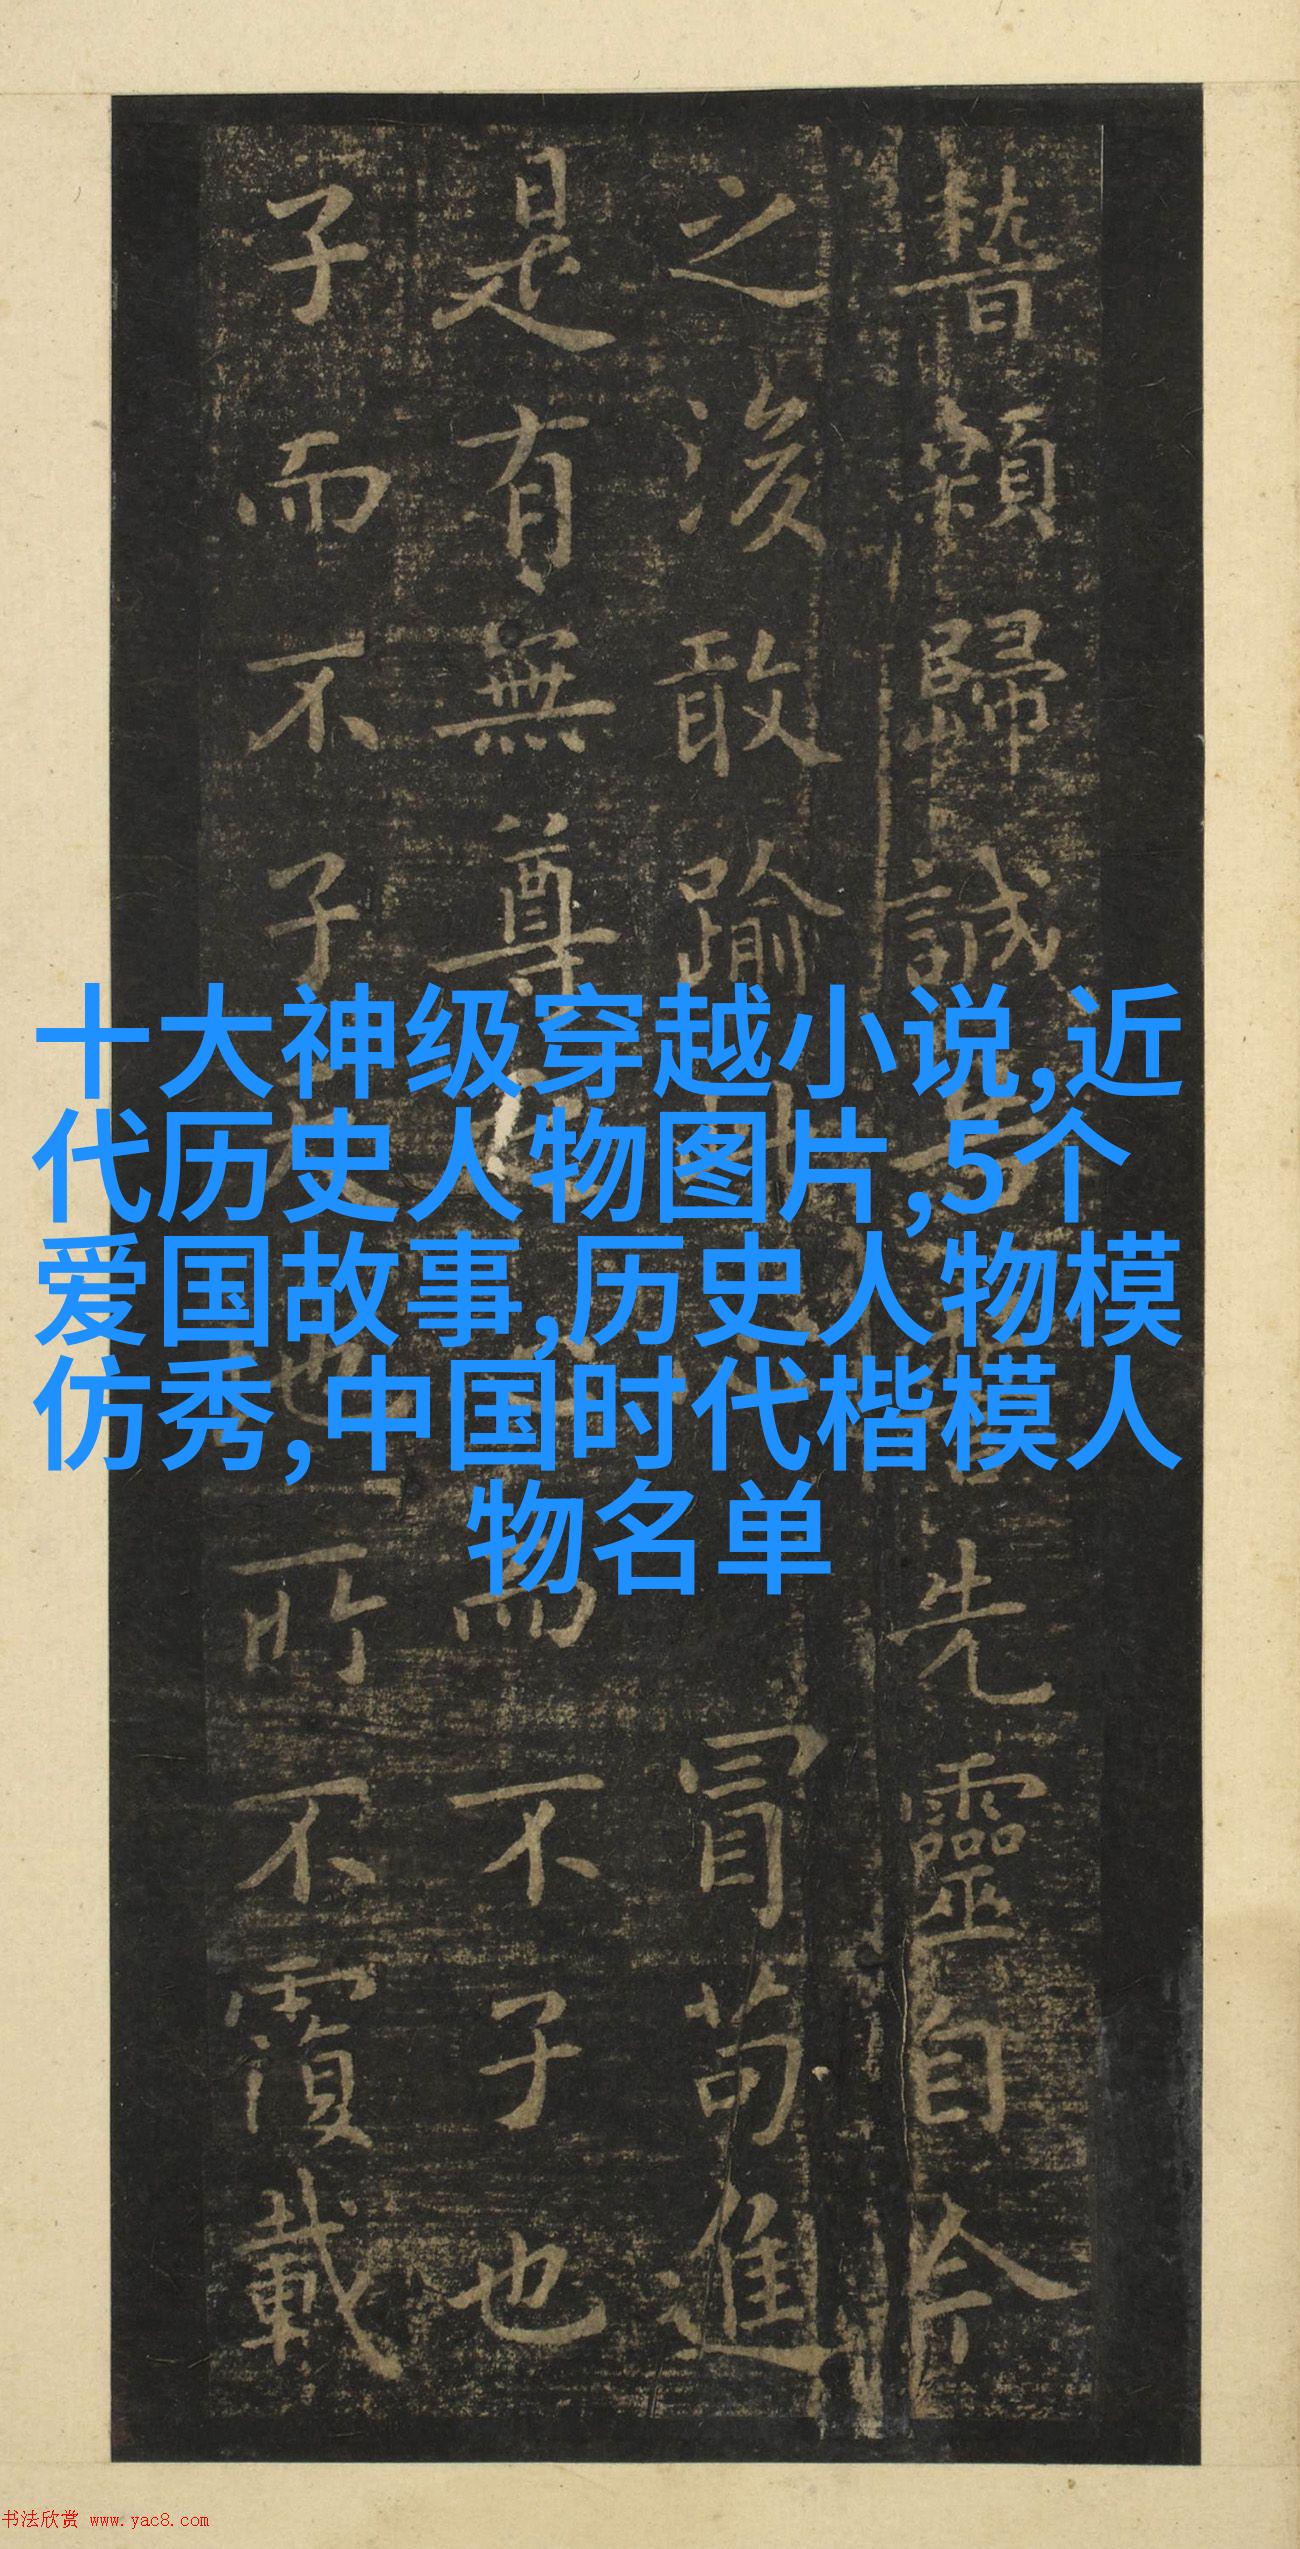 顙歸誠告誓先靈自今
之後敢踰冒苟進
是有無尊而不子也
子而不子天地所不覆載
十大神级穿越小说,近
代历史人物图片,5个
爱国故事,历史人物模
仿秀,中国时代楷模人
物名单
书法欣赏 www.yac8.com